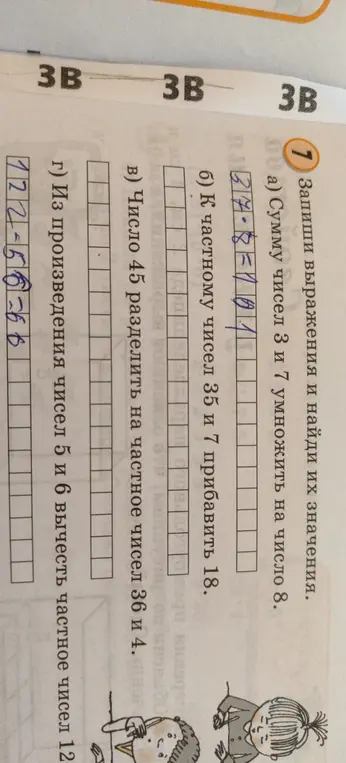 3В 3В 3В
7 Запиши выражения и найди их значения.
а) Сумму чисел 3 и 7 умножить на число 8.
37·8=101
б) К частному чисел 35 и 7 прибавить 18.
в) Число 45 разделить на частное чисел 36 и 4.
г) Из произведения чисел 5 и 6 вычесть частное чисел 12
122-56=66